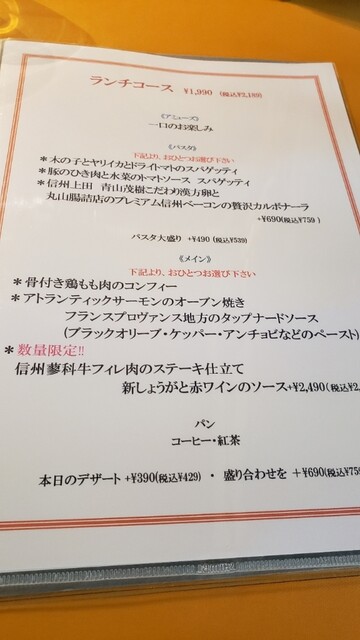 ランチコース ¥1,990 (税込¥2,189)
《アミューズ》
一口のお楽しみ
《パスタ》
下記より、おひとつお選び下さい
＊木の子とヤリイカとドライトマトのスパゲッティ
＊豚のひき肉と水菜のトマトソース スパゲッティ
＊信州上田 青山茂樹こだわり漢方卵と
丸山腸詰店のプレミアム信州ベーコンの贅沢カルボナーラ
+¥690(税込¥759)
パスタ大盛り +¥490 (税込¥539)
《メイン》
下記より、おひとつお選び下さい
＊骨付き鶏もも肉のコンフィー
＊アトランティックサーモンのオーブン焼き
フランスプロヴァンス地方のタップナードソース
(ブラックオリーブ・ケッパー・アンチョビなどのペースト)
＊数量限定!!
信州蓼科牛フィレ肉のステーキ仕立て
新しょうがと赤ワインのソース+¥2,490(税込¥2,
パン
コーヒー・紅茶
本日のデザート +¥390(税込¥429) ・ 盛り合わせを +¥690(税込¥759